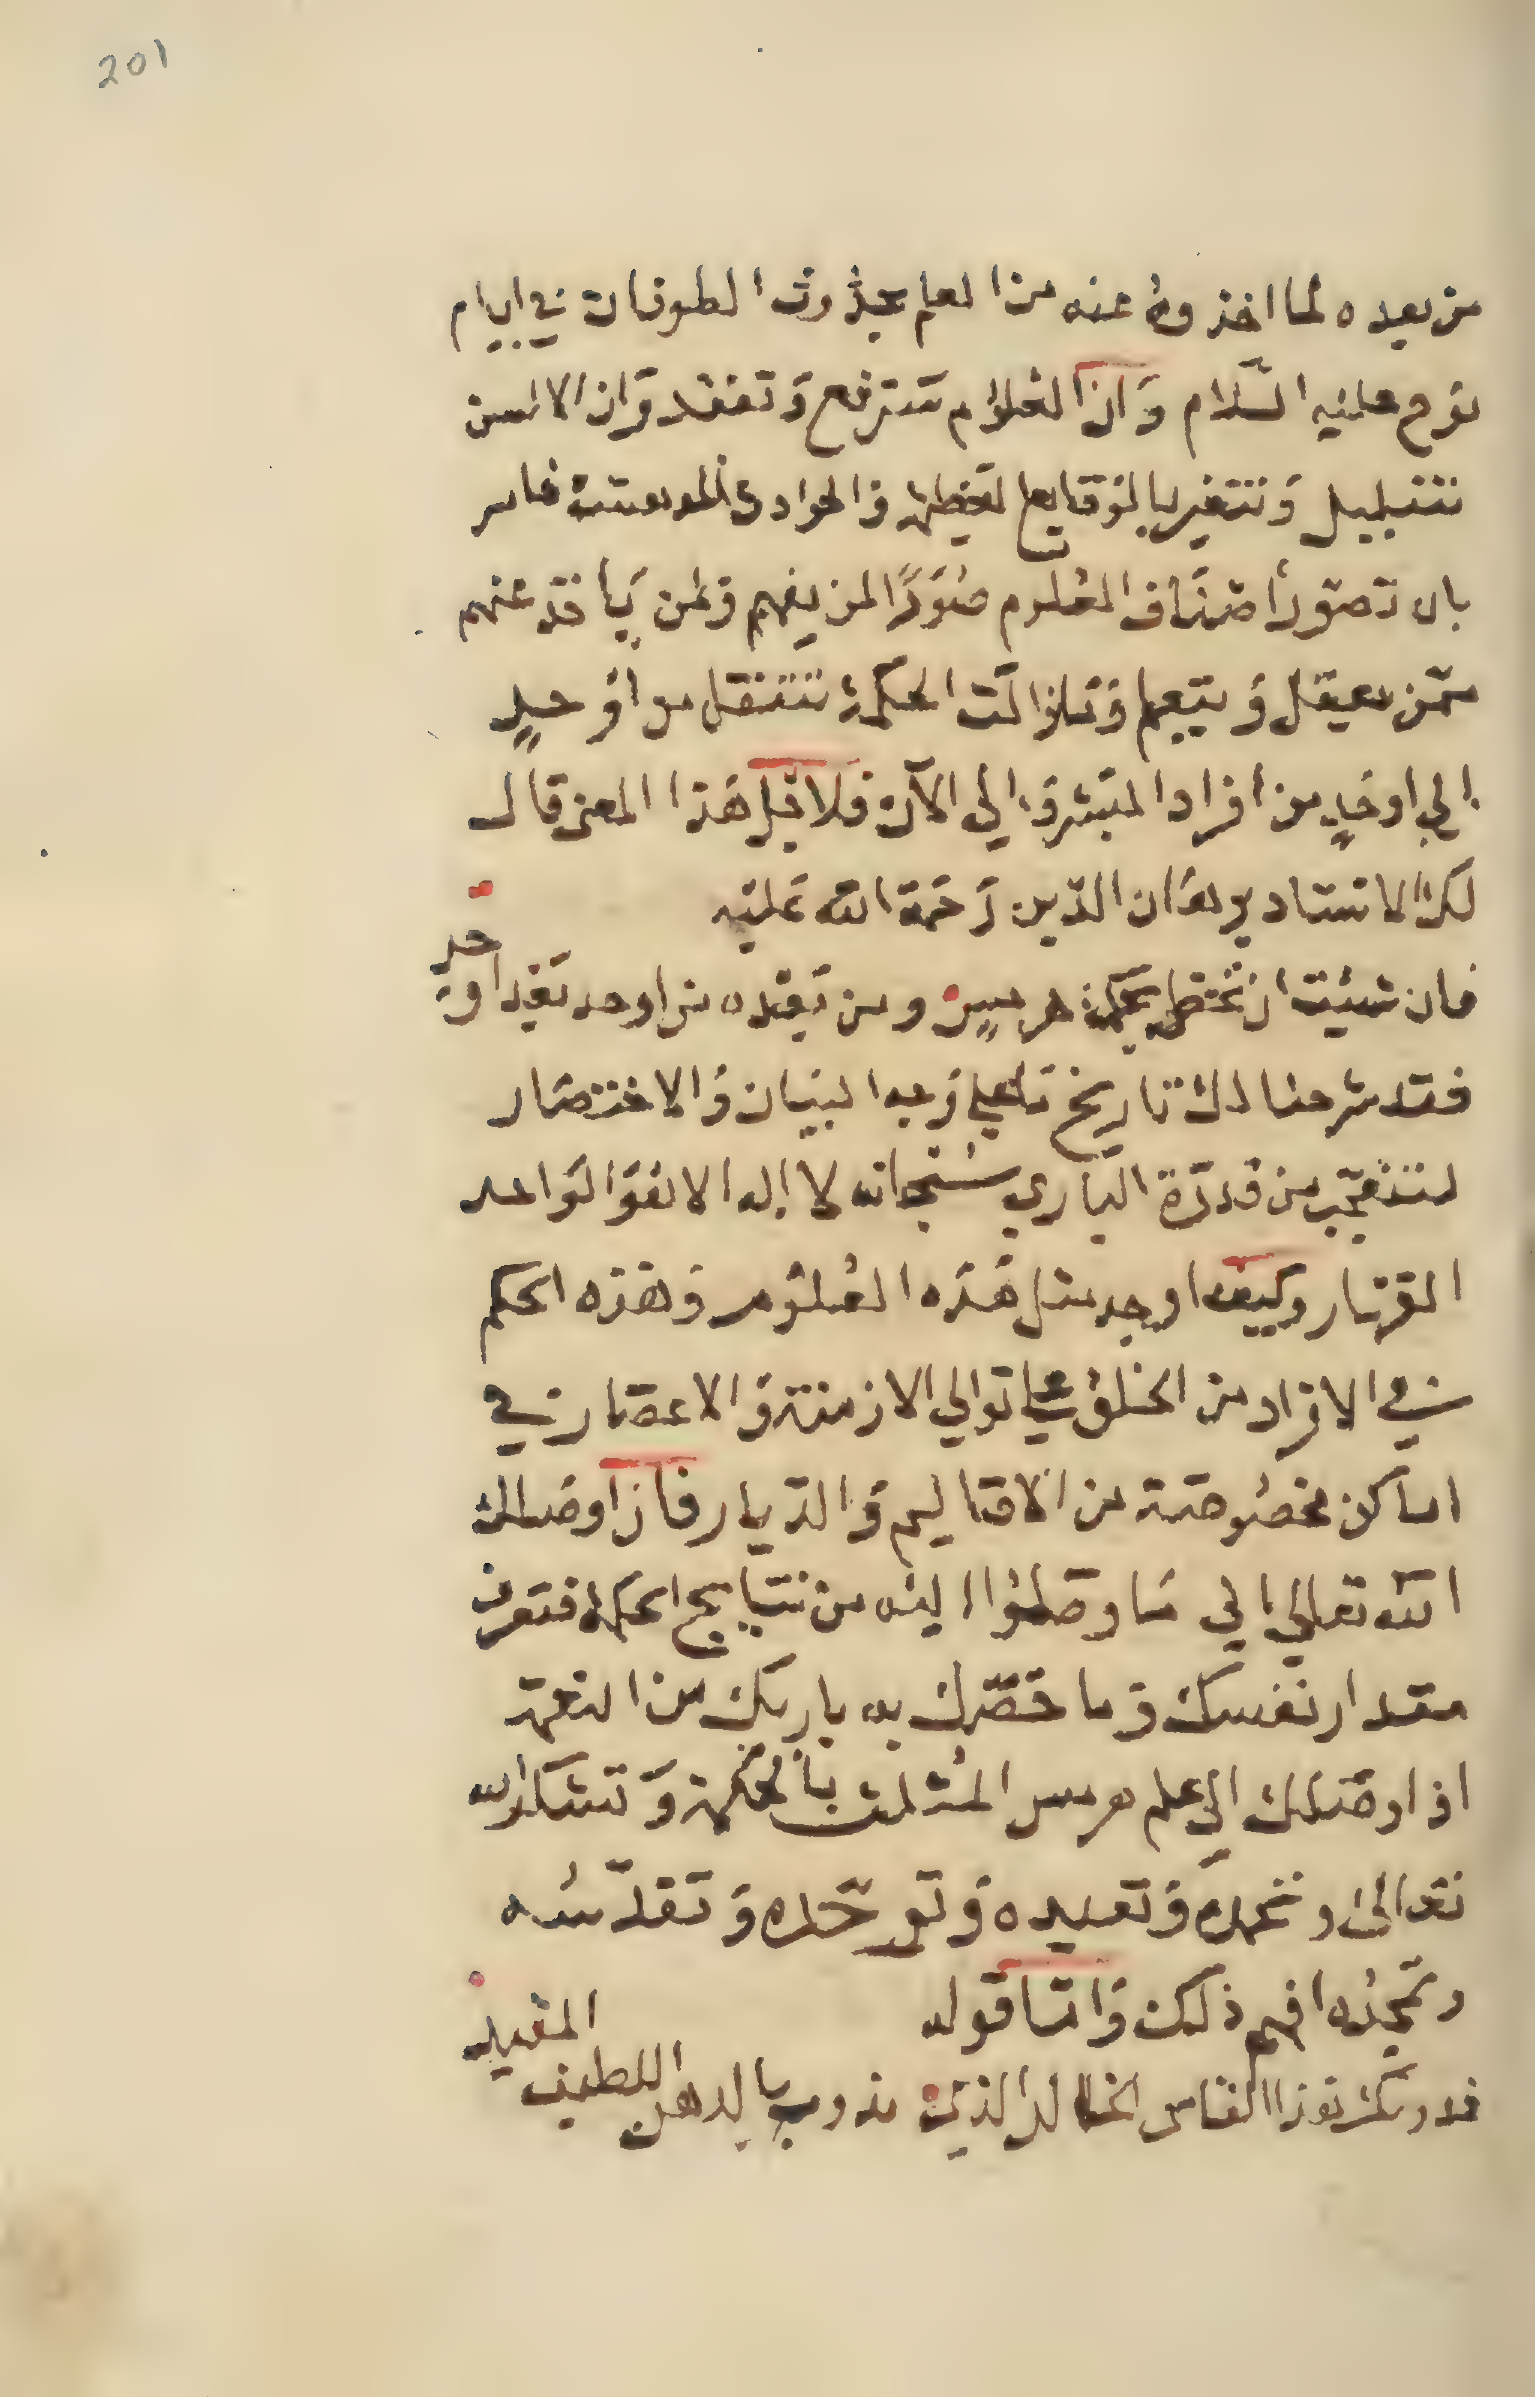 201
من بعده لما اخذوه عنه من العلم بحدوث الطوفان في ايام
نوح عليه السلام وان العلوم سترفع وتفقد وان الالسن
تتبلبل وتتغير بالوقايع العظيمة والحوادث فامر
بان تصور اصناف العلوم صورًا لمن يفهم ولمن ياخذ عنهم
ممن يعقل ويتعلم وما زالت الحكمة تتنقل من اوحدٍ
الي اوحدٍ من افراد البشر والي الآن فلاجل هذا المعنى قال
لك الاستاد برهان الدين رحمة الله عليه
فان شئت ان تحتظى بحكمة هرمسٍ ومن بعده من اوحد بعد اوحد
فقد شرحنا لك تاريخ علي وجه البيان والاختصار
لتتعجب من قدرة الباري سبحانه لا اله الا هو الواحد
القهار وكيف اوجد مثل هذه العلوم وهذه الحكم
في الافراد من الخلق علي توالي الازمنة والاعصار في
اماكن مخصوصة من الاقاليم والديار فاذا اوصلك
الله تعالي الي ما وصلوا اليه من نتايج الحكمة فتعرف
مقدار نفسك وما خصك به باريك من النعمة
اذا اوصلك الي علم هرمس المثلث بالحكمة وتشكر الله
تعالى وتحمده وتعبده وتوحده وتقدسه
وتمجده افهم ذلك واما قوله
فدونك هذا النحاس الذي يذوب بالدهن اللطيف المقيد